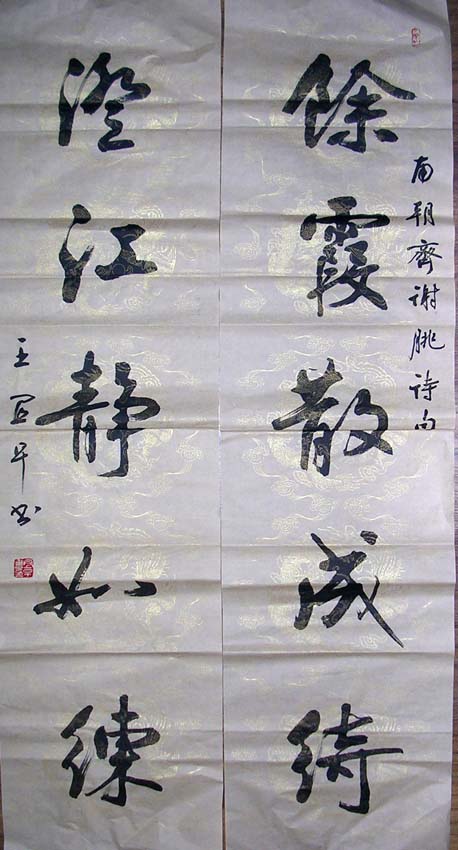 南朝齊谢朓诗句
餘霞散成綺
澄江静如練
王 平书